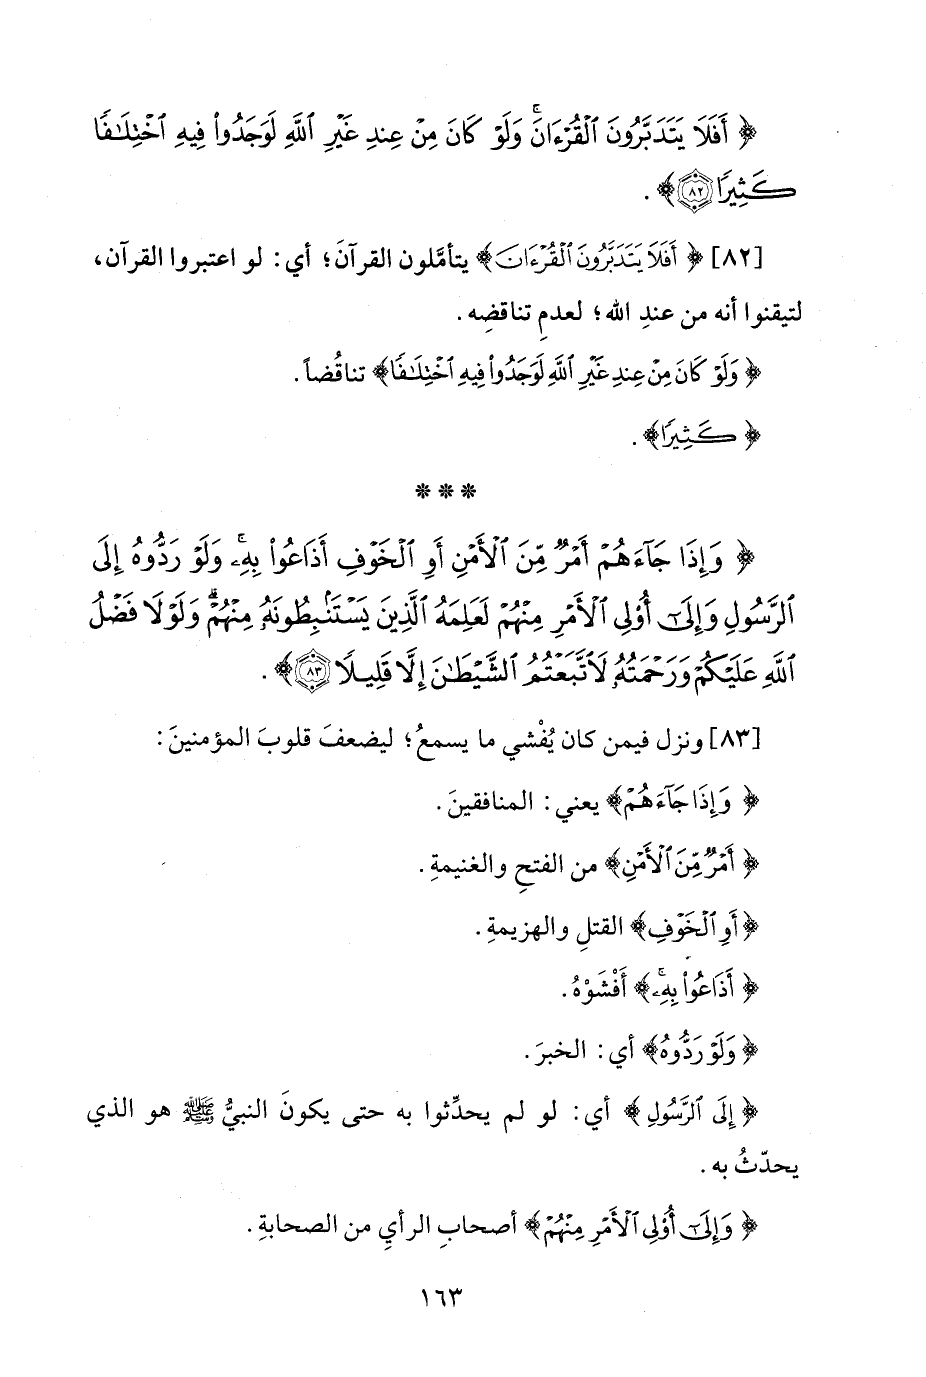 ﴿ أَفَلَا يَتَدَبَّرُونَ ٱلْقُرْءَانَ ۚ وَلَوْ كَانَ مِنْ عِندِ غَيْرِ ٱللَّهِ لَوَجَدُوا۟ فِيهِ ٱخْتِلَـٰفًا
كَثِيرًا ﴿٨٢﴾ ﴾ .
[٨٢] ﴿ أَفَلَا يَتَدَبَّرُونَ ٱلْقُرْءَانَ ﴾ يتأمَّلون القرآنَ؛ أي: لو اعتبروا القرآن،
لتيقنوا أنه من عندِ الله؛ لعدمِ تناقضِه .
﴿ وَلَوْ كَانَ مِنْ عِندِ غَيْرِ ٱللَّهِ لَوَجَدُوا۟ فِيهِ ٱخْتِلَـٰفًا ﴾ تناقُضاً .
﴿ كَثِيرًا ﴾ .
* * *
﴿ وَإِذَا جَآءَهُمْ أَمْرٌ مِّنَ ٱلْأَمْنِ أَوِ ٱلْخَوْفِ أَذَاعُوا۟ بِهِۦ ۖ وَلَوْ رَدُّوهُ إِلَى
ٱلرَّسُولِ وَإِلَىٰٓ أُو۟لِى ٱلْأَمْرِ مِنْهُمْ لَعَلِمَهُ ٱلَّذِينَ يَسْتَنۢبِطُونَهُۥ مِنْهُمْ ۗ وَلَوْلَا فَضْلُ
ٱللَّهِ عَلَيْكُمْ وَرَحْمَتُهُۥ لَٱتَّبَعْتُمُ ٱلشَّيْطَـٰنَ إِلَّا قَلِيلًا ﴿٨٣﴾ ﴾ .
[٨٣] ونزل فيمن كان يُفْشي ما يسمعُ؛ ليضعفَ قلوبَ المؤمنينَ:
﴿ وَإِذَا جَآءَهُمْ ﴾ يعني: المنافقينَ .
﴿ أَمْرٌ مِّنَ ٱلْأَمْنِ ﴾ من الفتحِ والغنيمةِ .
﴿ أَوِ ٱلْخَوْفِ ﴾ القتلِ والهزيمةِ .
﴿ أَذَاعُوا۟ بِهِۦ ۖ ﴾ أَفْشَوْهُ .
﴿ وَلَوْ رَدُّوهُ ﴾ أي: الخبرَ .
﴿ إِلَى ٱلرَّسُولِ ﴾ أي: لو لم يحدِّثوا به حتى يكونَ النبيُّ ﷺ هو الذي
يحدّثُ به .
﴿ وَإِلَىٰٓ أُو۟لِى ٱلْأَمْرِ مِنْهُمْ ﴾ أصحابِ الرأيِ من الصحابةِ .
١٦٣